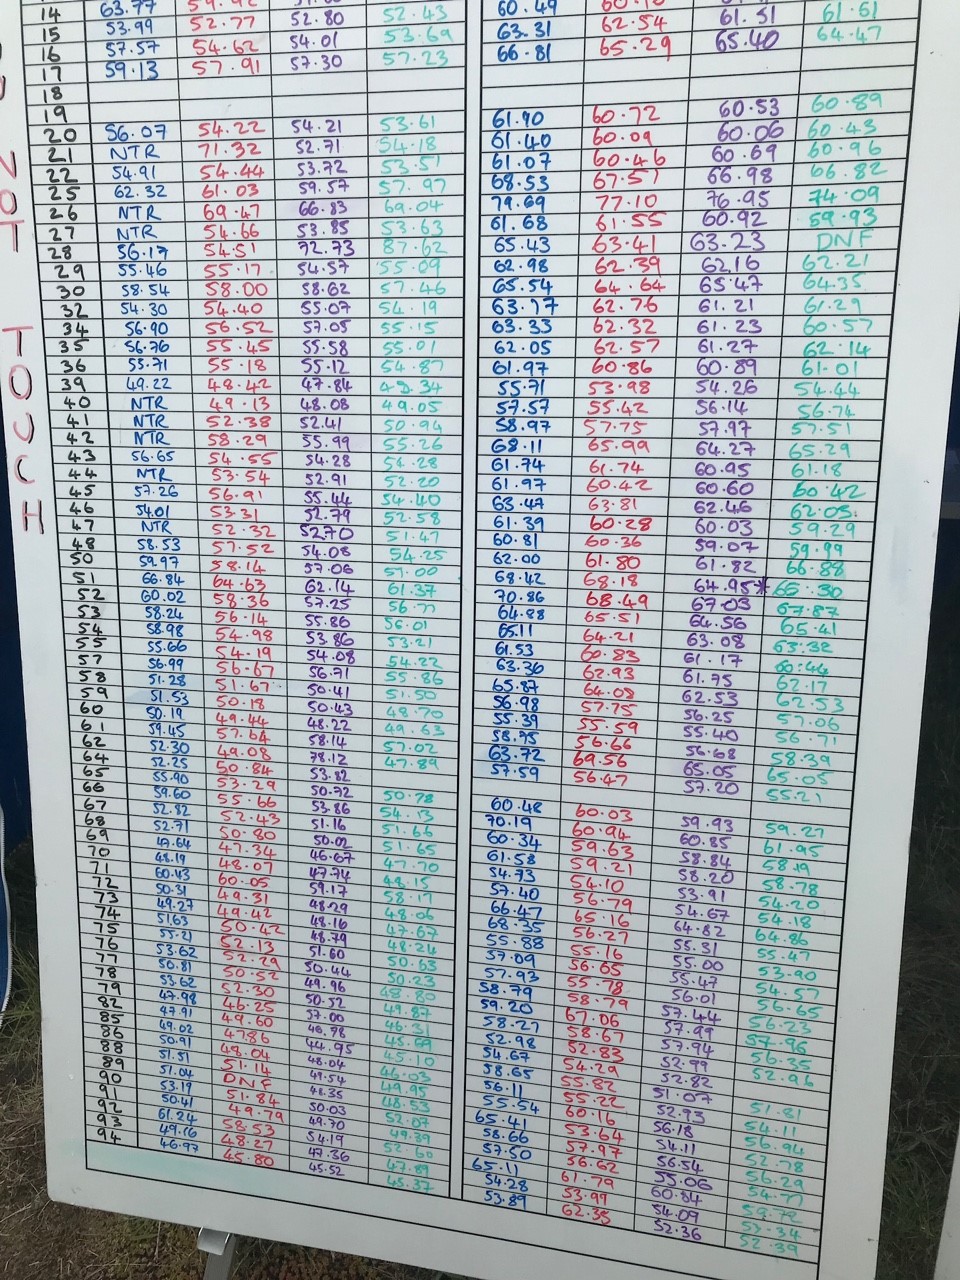 14 63.77 52.43
15 53.99 52.77 52.80 52.43 60.49
16 57.57 54.62 54.01 53.69 63.31 62.54 61.51 61.61
17 59.13 57.91 57.30 57.23 66.81 65.29 65.40 64.47
18
19
20 56.07 54.22 54.21 53.61 61.90 60.72 60.53 60.89
21 NTR 71.32 52.71 54.18 61.40 60.09 60.06 60.43
22 54.91 54.44 53.72 53.51 61.07 60.46 60.69 60.96
25 62.32 61.03 59.57 57.97 68.53 67.57 66.98 66.82
26 NTR 69.47 66.83 69.04 79.69 77.10 76.95 74.09
27 NTR 54.66 53.85 53.63 61.68 61.55 60.92 59.93
28 56.17 54.51 72.73 87.62 65.43 63.41 63.23 DNF
29 55.46 55.17 54.57 55.09 62.98 62.39 62.16 62.21
30 58.54 58.00 58.62 57.46 65.54 64.64 65.47 64.35
32 54.30 54.40 55.07 54.19 63.17 62.76 61.21 61.29
34 56.90 56.52 57.05 55.15 63.33 62.32 61.23 60.57
35 56.76 55.45 55.58 55.01 62.05 62.57 61.27 62.14
36 55.71 55.18 55.12 54.87 61.97 60.86 60.89 61.01
39 49.22 48.42 47.84 49.34 55.71 53.98 54.26 54.44
40 NTR 49.13 48.08 49.05 57.57 55.42 56.14 56.74
41 NTR 52.38 52.41 50.94 58.97 57.75 57.97 57.51
42 NTR 58.29 55.99 55.26 68.11 65.99 64.27 65.29
43 56.65 54.55 54.28 54.28 61.74 61.74 60.95 61.18
44 NTR 53.54 52.91 52.20 61.97 60.42 60.60 60.42
45 57.26 56.91 55.44 54.40 63.47 63.81 62.46 62.05
46 54.01 53.31 52.79 52.58 61.39 60.28 60.03 59.29
47 NTR 52.32 52.70 51.47 60.81 60.36 59.07 59.99
48 58.53 57.52 54.08 54.25 62.00 61.80 61.82 66.88
50 59.97 58.14 57.06 57.00 68.42 68.18 64.95* 66.30
51 66.84 64.63 62.14 61.37 70.86 68.49 67.03 67.87
52 60.02 58.36 57.25 56.77 64.88 65.51 64.56 65.41
53 58.24 56.14 55.86 56.01 65.11 64.21 63.08 63.32
54 58.98 54.98 53.86 53.21 61.53 60.83 61.17 60.44
55 55.66 54.19 54.08 54.22 63.36 62.93 61.75 62.17
57 56.99 56.67 56.71 55.86 65.87 64.08 62.53 62.53
58 51.28 51.67 50.41 51.50 56.98 57.75 56.25 57.06
59 51.53 50.18 50.43 48.70 55.39 55.59 55.40 56.71
60 50.19 49.44 48.22 49.63 58.75 56.66 56.68 58.39
61 59.45 57.64 58.14 57.02 63.72 69.56 65.05 65.05
62 52.30 49.08 78.12 47.89 57.59 56.47 57.20 55.21
64 52.25 50.84 53.82
65 55.90 53.29 50.72 50.78 60.48 60.03 59.93 59.27
66 59.60 55.66 53.86 54.13 70.19 60.94 60.85 61.95
67 52.82 52.43 51.16 51.66 60.34 59.63 58.84 58.19
68 52.71 50.80 50.02 51.65 61.58 59.21 58.20 58.78
69 49.64 47.34 46.67 47.70 54.73 54.10 53.91 54.20
70 48.19 48.07 47.74 48.15 57.40 56.79 54.67 54.18
71 60.43 60.05 59.17 58.17 66.47 65.16 64.82 64.86
72 50.31 49.31 48.29 48.06 68.35 56.27 55.31 55.47
73 49.27 49.42 48.16 47.67 55.88 55.16 55.00 53.90
74 51.63 50.42 48.79 48.24 57.09 56.65 55.47 54.57
75 55.21 52.13 51.60 50.63 57.93 55.78 56.01 56.65
76 53.62 52.29 50.44 50.23 58.79 58.79 57.44 56.23
77 50.81 50.52 49.96 48.80 59.20 67.06 57.99 57.96
78 53.62 52.30 50.52 49.87 58.27 58.67 57.94 56.35
79 47.98 46.25 57.00 46.31 52.98 52.83 52.99 52.96
82 47.91 49.60 46.98 45.69 54.67 54.29 52.82
85 49.02 47.86 44.95 45.10 58.65 55.82 51.07 51.81
86 50.91 48.04 48.04 46.03 56.11 55.22 52.93 54.11
88 51.51 51.14 49.54 49.95 55.54 60.16 56.18 56.94
89 51.04 DNF 48.35 48.53 65.41 53.64 54.11 52.78
90 53.19 51.84 50.03 52.07 58.66 57.97 56.54 56.29
91 50.41 49.79 49.70 49.39 57.50 56.62 55.06 54.77
92 61.24 58.53 54.19 52.60 65.11 61.79 60.84 59.72
93 49.16 48.27 47.36 47.89 54.28 53.99 54.09 53.34
94 46.97 45.80 45.52 45.37 53.89 62.35 52.36 52.39
NOT TOUCH